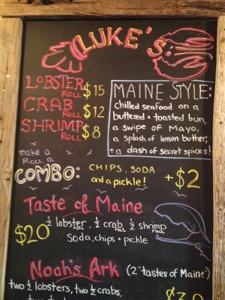 LUKE'S
LOBSTER ROLL $15
CRAB ROLL $12
SHRIMP ROLL $8
MAINE STYLE:
chilled seafood on a
buttered + toasted bun,
a swipe of Mayo,
a splash of lemon butter,
+ a dash of secret spices!
make a
ROLL a
COMBO:
CHIPS, SODA
and a pickle!
+$2
Taste of Maine
$20
½ lobster, ½ crab, ½ shrimp
Soda, chips + pickle
Noah's Ark (2 "tastes of Maine")
two ½ lobsters, two ½ crabs,